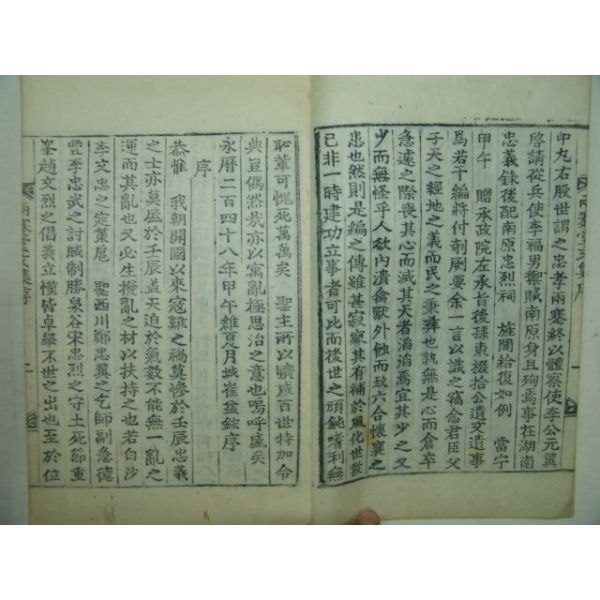 中丸右股世謂之忠孝兩蹇終以體察使李公元翼
啓請從兵使李福男禦賊南原身且殉焉事在湖南
忠義錄後配南原忠烈祠 旌閭給復如例 當宁
甲午 贈承政院左承旨後孫東掇拾公遺文遺事
爲若干編將付剞劂要余一言以識之竊念君臣父
子天之經地之義而民之秉彝也孰無是心而倉卒
急遽之際喪其心而滅其天者滔滔焉宜其少之又
少而無怪乎人欲內潰禽獸外蝕而致六合懷襄之
患也然則是編之傳雖甚寂寥其有補於風化世敎
已非一時建功立事者可比而後世之頑鈍嗜利無
恥輩可愧死萬萬矣 聖主所以曠感百世特加令
典豈偶然哉亦以寓亂極思治之意也嗚呼盛矣
永曆二百四十八年甲午維夏月城崔益鉉序
序
恭惟 我朝開國以來寇難之禍莫慘於壬辰忠義
之士亦莫盛於壬辰蓋天迫於氣數不能無一亂之
運而其亂也又必生撥亂之材以扶持之也若白沙
李文忠之定策扈 聖西川鄭忠翼之乞師副急德
豐李忠武之討賊制勝泉谷宋忠烈之守土死節重
峯趙文烈之倡義立慬皆卓犖不世之出也至於位